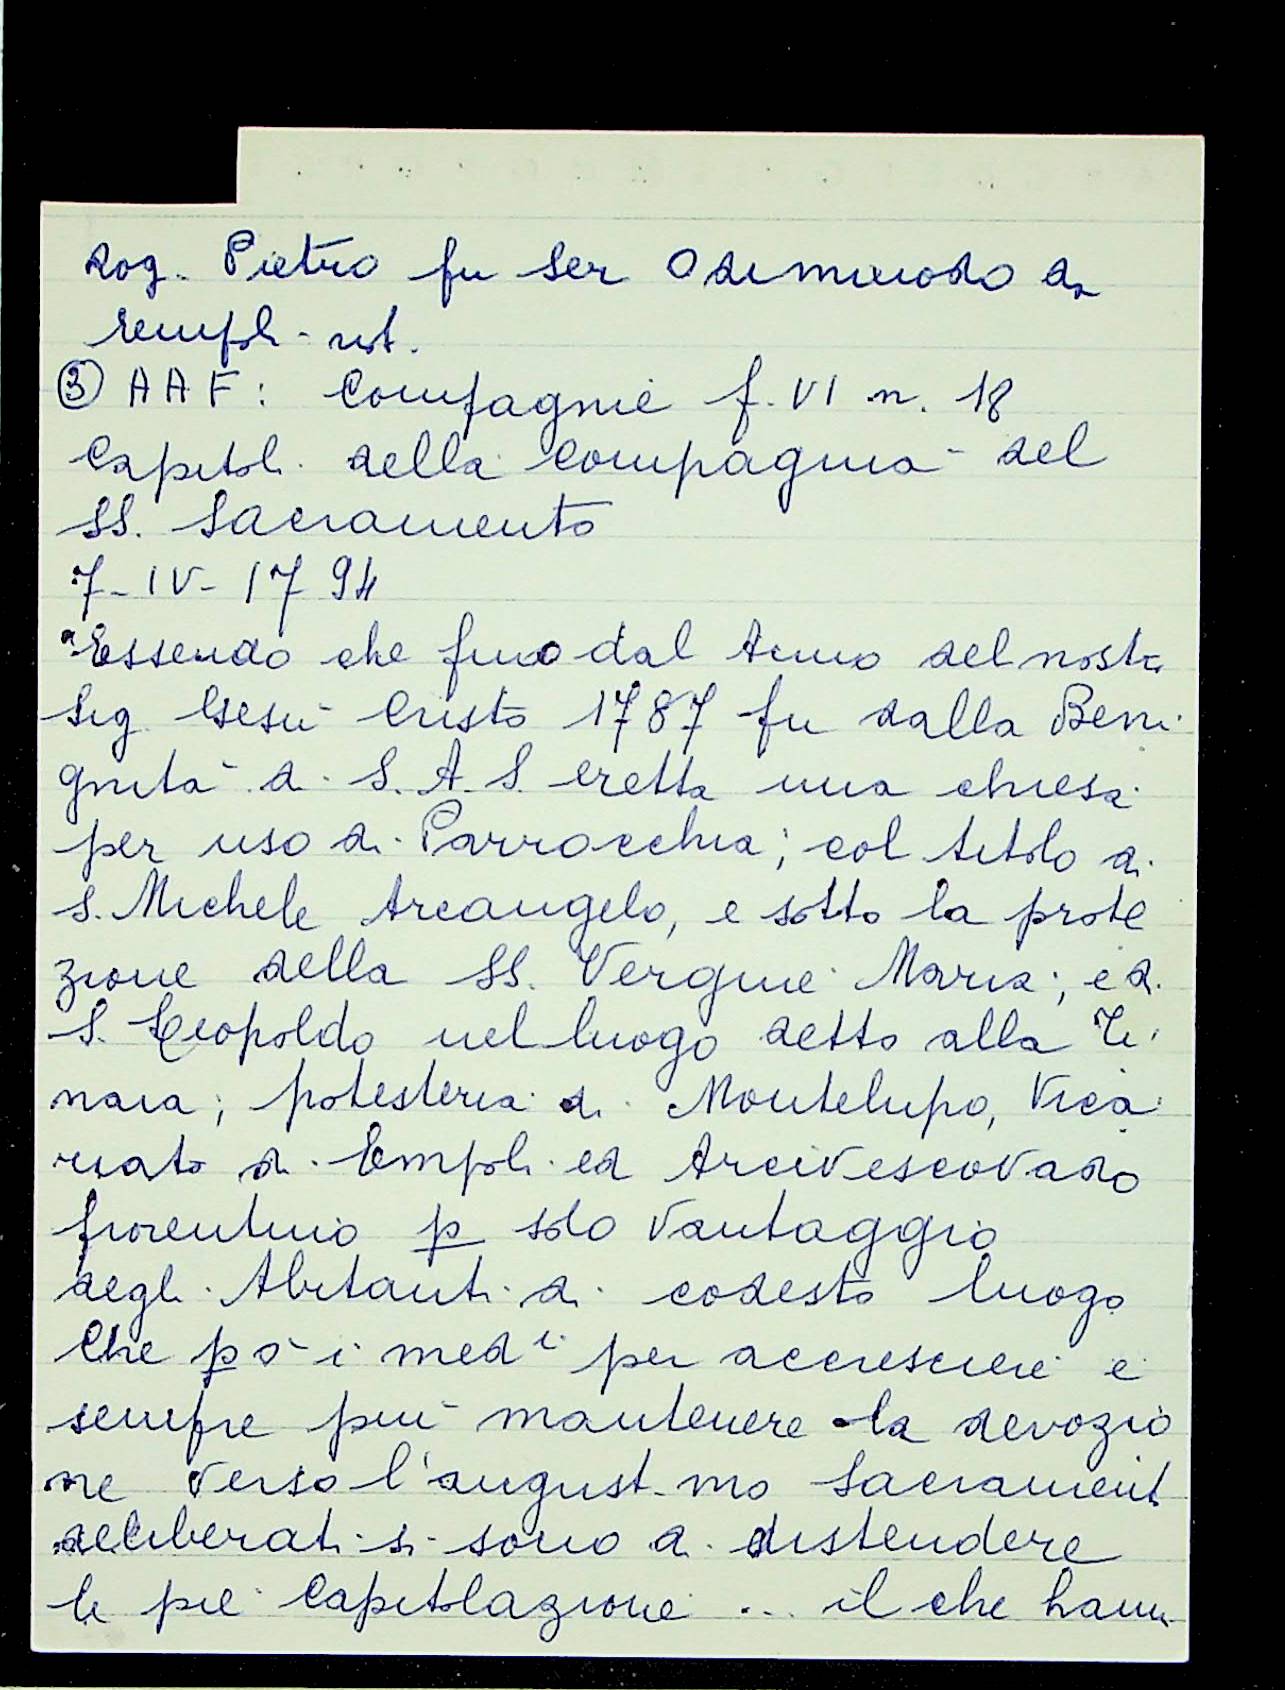 rog. Pietro fu ser Odimerodo da
Empoli - not.
③ AAF: Compagnie f. VI n. 18
Capitoli della Compagnia del
SS. Sacramento
7-IV-1794
"Essendo che fino dal Anno del nostro
Sig Gesù Cristo 1787 fu dalla Beni
gnità di S.A.S. eretta una chiesa
per uso di Parrocchia; col titolo di
S. Michele Arcangelo, e sotto la prote
zione della SS. Vergine Maria; e di
S. Leopoldo nel luogo detto alla Ti
naia; potesteria di Montelupo, Vica
riato di Empoli ed Arcivescovado
fiorentino p solo vantaggio
degli Abitanti di codesto luogo
Che pò i medⁱ per accrescere e
sempre più mantenere la devozio
ne verso l'august.mo Sacrament
deliberati si sono di distendere
le pie Capitolazione ... il che hann